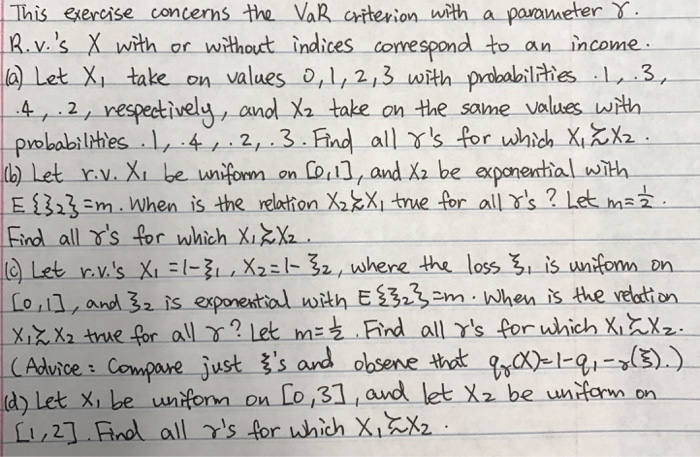 This exercise concerns the VaR criterion with a parameter γ.
R.v.'s X with or without indices correspond to an income.
(a) Let X₁ take on values 0,1,2,3 with probabilities .1, .3,
.4, .2, respectively, and X₂ take on the same values with
probabilities .1, .4, .2, .3. Find all γ's for which X₁ ≿ X₂.
(b) Let r.v. X₁ be uniform on [0,1], and X₂ be exponential with
E{ξ₂}=m. When is the relation X₂ ≿ X₁ true for all γ's? Let m=½.
Find all γ's for which X₁ ≿ X₂.
(c) Let r.v.'s X₁ = 1-ξ₁, X₂ = 1-ξ₂, where the loss ξ₁ is uniform on
[0,1], and ξ₂ is exponential with E{ξ₂}=m. When is the relation
X₁ ≿ X₂ true for all γ? Let m=½. Find all γ's for which X₁ ≿ X₂.
(Advice: Compare just ξ's and observe that qᵧ(X)=1-q₁₋ᵧ(ξ).)
(d) Let X₁ be uniform on [0,3], and let X₂ be uniform on
[1,2]. Find all γ's for which X₁ ≿ X₂.